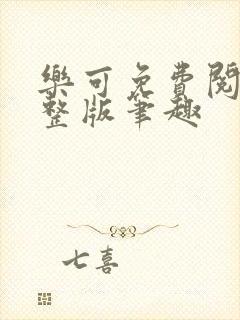 樂可免費閱
整版筆趣
七喜